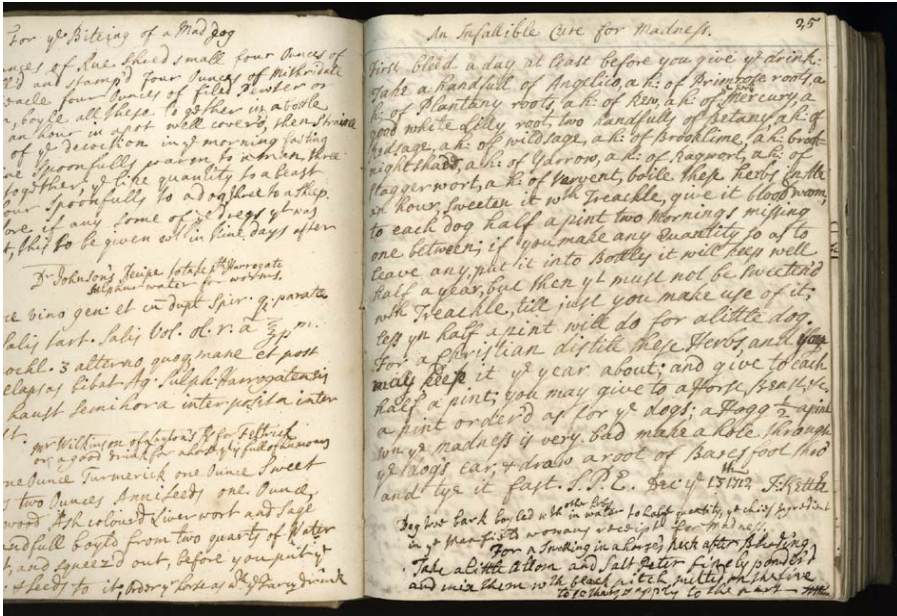 For ye Biteing of a Mad Dog
unces of Rue Shred small four Ounces of
and stamp'd Four Ounces of Mithridate
four Ounces of filed Pewter or
boyle all these together in a bottle
an hour in a pot well cover'd, then straine
of ye decoction in ye morning fasting
Spoonfulls warm to a man, three
together, ye like quantity to a beast
Spoonfulls to a dog three to a Ship.
if any some of ye dregs yt was
this to be given in nine days after
Dr Johnson's Recipe to take Harrogate
Sulphur water for worms.
vino gen: et in dupl. Spir. parate
Salis tart. Salis Vol. ol. r. a
Cochl. 3 alterno quoq mane et post
elapsas bibat Aq. Sulph. Harrogatensis
haust semihora interposita inter
Mr Wilkinson of for
or a good drink for a full of humours
ne Ounce Turmerick one Ounce Sweet
two Ounces Anniseeds one Ounce
Ash coloured Liverwort and Sage
handfull boyld from two quarts of Water
and squeez'd out, before you put ye
seeds to it, Order yr horse as
25
An Infallible Cure for Madness.
First bleed a day at least before you give ye drink.
Take a handfull of Angelico, a h: of Primrose roots, a
h: of Plantany roots, a h: of Rew, a h: of Mercury, a
good white Lilly root, two handfulls of Betany a h: of
Redsage, a h: of wildsage, a h: of Brooklime, a h:
nightshadd, a h: of Yarrow, a h: of Ragwort, a h: of
Staggerwort, a h: of Vervent, boile these herbs in Ale
an hour, sweeten it wth Treackle, give it blood worm,
to each dog half a pint two Mornings missing
one between; if you make any Quantity so as to
leave any, put it into Bottles it will keep well
half a year, but then yt must not be sweetend
wth Treackle, till just you make use of it;
less yn half a pint will do for a little dog.
For a Christian distill these Herbs, and you
may keep it ye year about; and give to each
half a pint; you may give to a Horse, Beast, &c.
a pint order'd as for ye dogs; a Hogg ½ a pint
wn ye madness is very bad make a hole through
ye Dog's ear, & draw a root of Baresfoot thro
and tye it fast. S.P.E. Dec ye 13th 1712 J: Kettle
Dog tree bark boyled wth other herbs in water to half quantity, ye chief ingredient
in ye womans receipt for Madness.
For a Swelling in a horse's Neck after Bleeding
Take a little Allom and Salt Peter finely ponder'd
and mix them wth black pitch, melt on the fire
together, & apply to the part